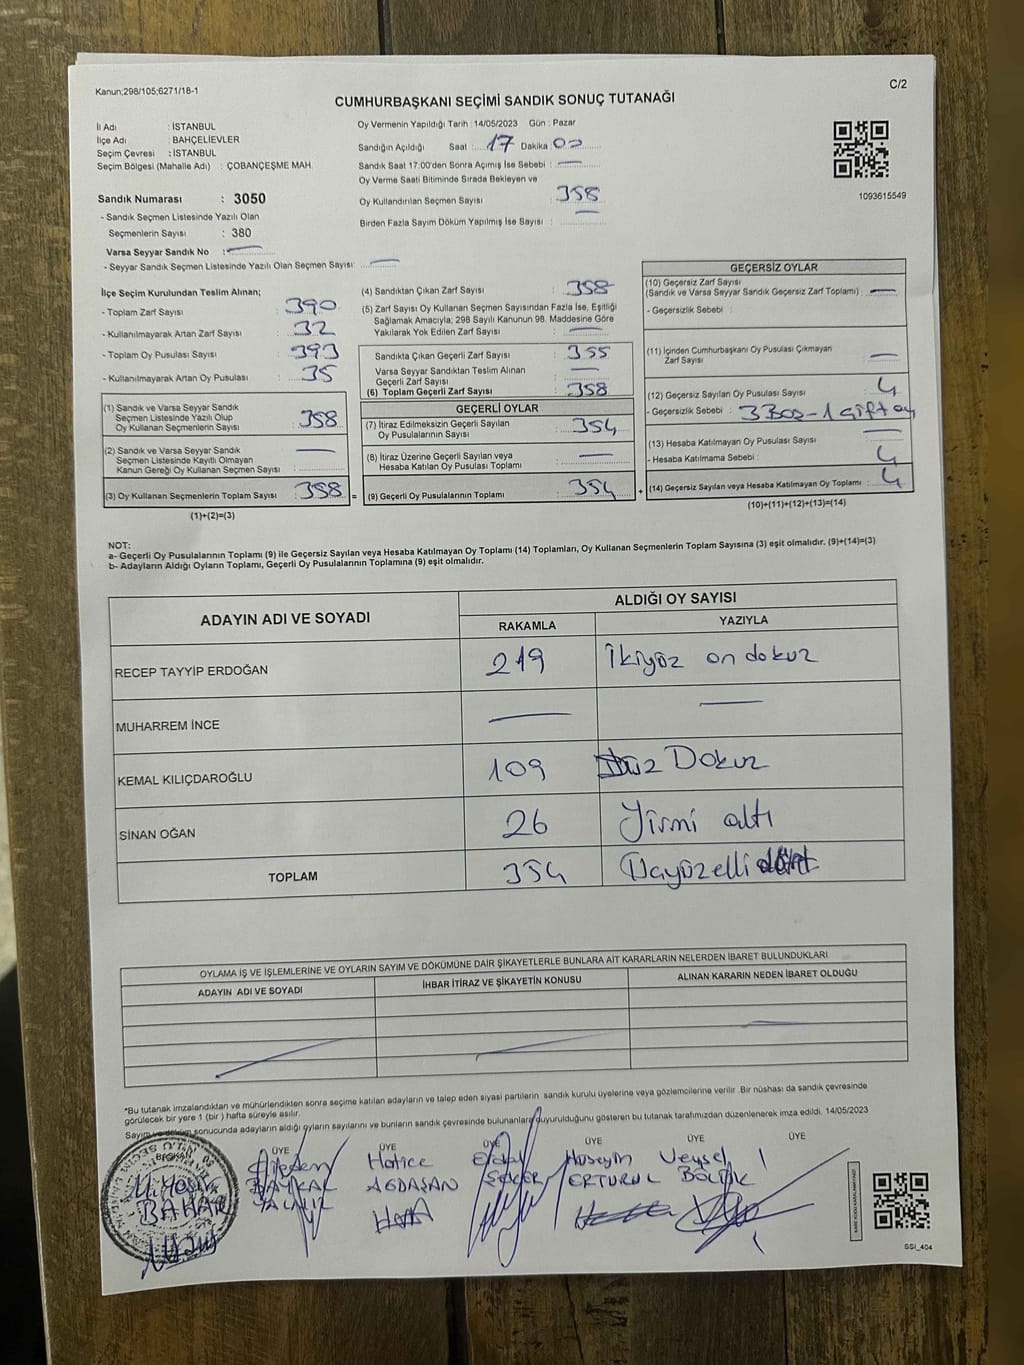 Kanun;298/105;6271/18-1
C/2
CUMHURBAŞKANI SEÇİMİ SANDIK SONUÇ TUTANAĞI
İl Adı : İSTANBUL
İlçe Adı : BAHÇELİEVLER
Seçim Çevresi : İSTANBUL
Seçim Bölgesi (Mahalle Adı) : ÇOBANÇEŞME MAH.
Sandık Numarası : 3050
- Sandık Seçmen Listesinde Yazılı Olan
Seçmenlerin Sayısı : 380
Varsa Seyyar Sandık No :
- Seyyar Sandık Seçmen Listesinde Yazılı Olan Seçmen Sayısı:
Oy Vermenin Yapıldığı Tarih : 14/05/2023 Gün : Pazar
Sandığın Açıldığı Saat 17 Dakika 00
Sandık Saat 17:00'den Sonra Açımış İse Sebebi :
Oy Verme Saati Bitiminde Sırada Bekleyen ve
Oy Kullandırılan Seçmen Sayısı : 358
Birden Fazla Sayım Döküm Yapılmış İse Sayısı :
1093615549
İlçe Seçim Kurulundan Teslim Alınan;
- Toplam Zarf Sayısı : 390
- Kullanılmayarak Artan Zarf Sayısı : 32
- Toplam Oy Pusulası Sayısı : 393
- Kullanılmayarak Artan Oy Pusulası : 35
(1) Sandık ve Varsa Seyyar Sandık
Seçmen Listesinde Yazılı Olup
Oy Kullanan Seçmenlerin Sayısı : 358
(2) Sandık ve Varsa Seyyar Sandık
Seçmen Listesinde Kayıtlı Olmayan
Kanun Gereği Oy Kullanan Seçmen Sayısı :
(3) Oy Kullanan Seçmenlerin Toplam Sayısı : 358 =
(1)+(2)=(3)
(4) Sandıktan Çıkan Zarf Sayısı : 358
(5) Zarf Sayısı Oy Kullanan Seçmen Sayısından Fazla İse, Eşitliği
Sağlamak Amacıyla, 298 Sayılı Kanunun 98. Maddesine Göre
Yakılarak Yok Edilen Zarf Sayısı :
Sandıkta Çıkan Geçerli Zarf Sayısı : 355
Varsa Seyyar Sandıktan Teslim Alınan
Geçerli Zarf Sayısı :
(6) Toplam Geçerli Zarf Sayısı : 358
GEÇERLİ OYLAR
(7) İtiraz Edilmeksizin Geçerli Sayılan
Oy Pusulalarının Sayısı : 354
(8) İtiraz Üzerine Geçerli Sayılan veya
Hesaba Katılan Oy Pusulası Toplamı :
(9) Geçerli Oy Pusulalarının Toplamı : 354 +
GEÇERSİZ OYLAR
(10) Geçersiz Zarf Sayısı
(Sandık ve Varsa Seyyar Sandık Geçersiz Zarf Toplamı) :
- Geçersizlik Sebebi :
(11) İçinden Cumhurbaşkanı Oy Pusulası Çıkmayan
Zarf Sayısı :
(12) Geçersiz Sayılan Oy Pusulası Sayısı : 4
- Geçersizlik Sebebi : 3 Boş - 1 Çift oy
(13) Hesaba Katılmayan Oy Pusulası Sayısı :
- Hesaba Katılmama Sebebi : 4
(14) Geçersiz Sayılan veya Hesaba Katılmayan Oy Toplamı : 4
(10)+(11)+(12)+(13)=(14)
NOT:
a- Geçerli Oy Pusulalarının Toplamı (9) ile Geçersiz Sayılan veya Hesaba Katılmayan Oy Toplamı (14) Toplamları, Oy Kullanan Seçmenlerin Toplam Sayısına (3) eşit olmalıdır. (9)+(14)=(3)
b- Adayların Aldığı Oyların Toplamı, Geçerli Oy Pusulalarının Toplamına (9) eşit olmalıdır.
ADAYIN ADI VE SOYADI
ALDIĞI OY SAYISI
RAKAMLA YAZIYLA
RECEP TAYYİP ERDOĞAN 219 İkiyüz on dokuz
MUHARREM İNCE
KEMAL KILIÇDAROĞLU 109 Yüz Dokuz
SİNAN OĞAN 26 Yirmi altı
TOPLAM 354 Üçyüzelli dört
OYLAMA İŞ VE İŞLEMLERİNE VE OYLARIN SAYIM VE DÖKÜMÜNE DAİR ŞİKAYETLERLE BUNLARA AİT KARARLARIN NELERDEN İBARET BULUNDUKLARI
ADAYIN ADI VE SOYADI İHBAR İTİRAZ VE ŞİKAYETİN KONUSU ALINAN KARARIN NEDEN İBARET OLDUĞU
*Bu tutanak imzalandıktan ve mühürlendikten sonra seçime katılan adayların ve talep eden siyasi partilerin sandık kurulu üyelerine veya gözlemcilerine verilir. Bir nüshası da sandık çevresinde
görülecek bir yere 1 (bir) hafta süreyle asılır.
Sayım ve döküm sonucunda adayların aldığı oyların sayılarını ve bunların sandık çevresinde bulunanlara duyurulduğunu gösteren bu tutanak tarafımızdan düzenlenerek imza edildi. 14/05/2023
BAŞKAN ÜYE ÜYE ÜYE ÜYE ÜYE ÜYE
Hatice Hüseyin Veysel
BAHAR BAYKAL AĞDAŞAN ERTUĞRUL BÖLÜK
SSI_404